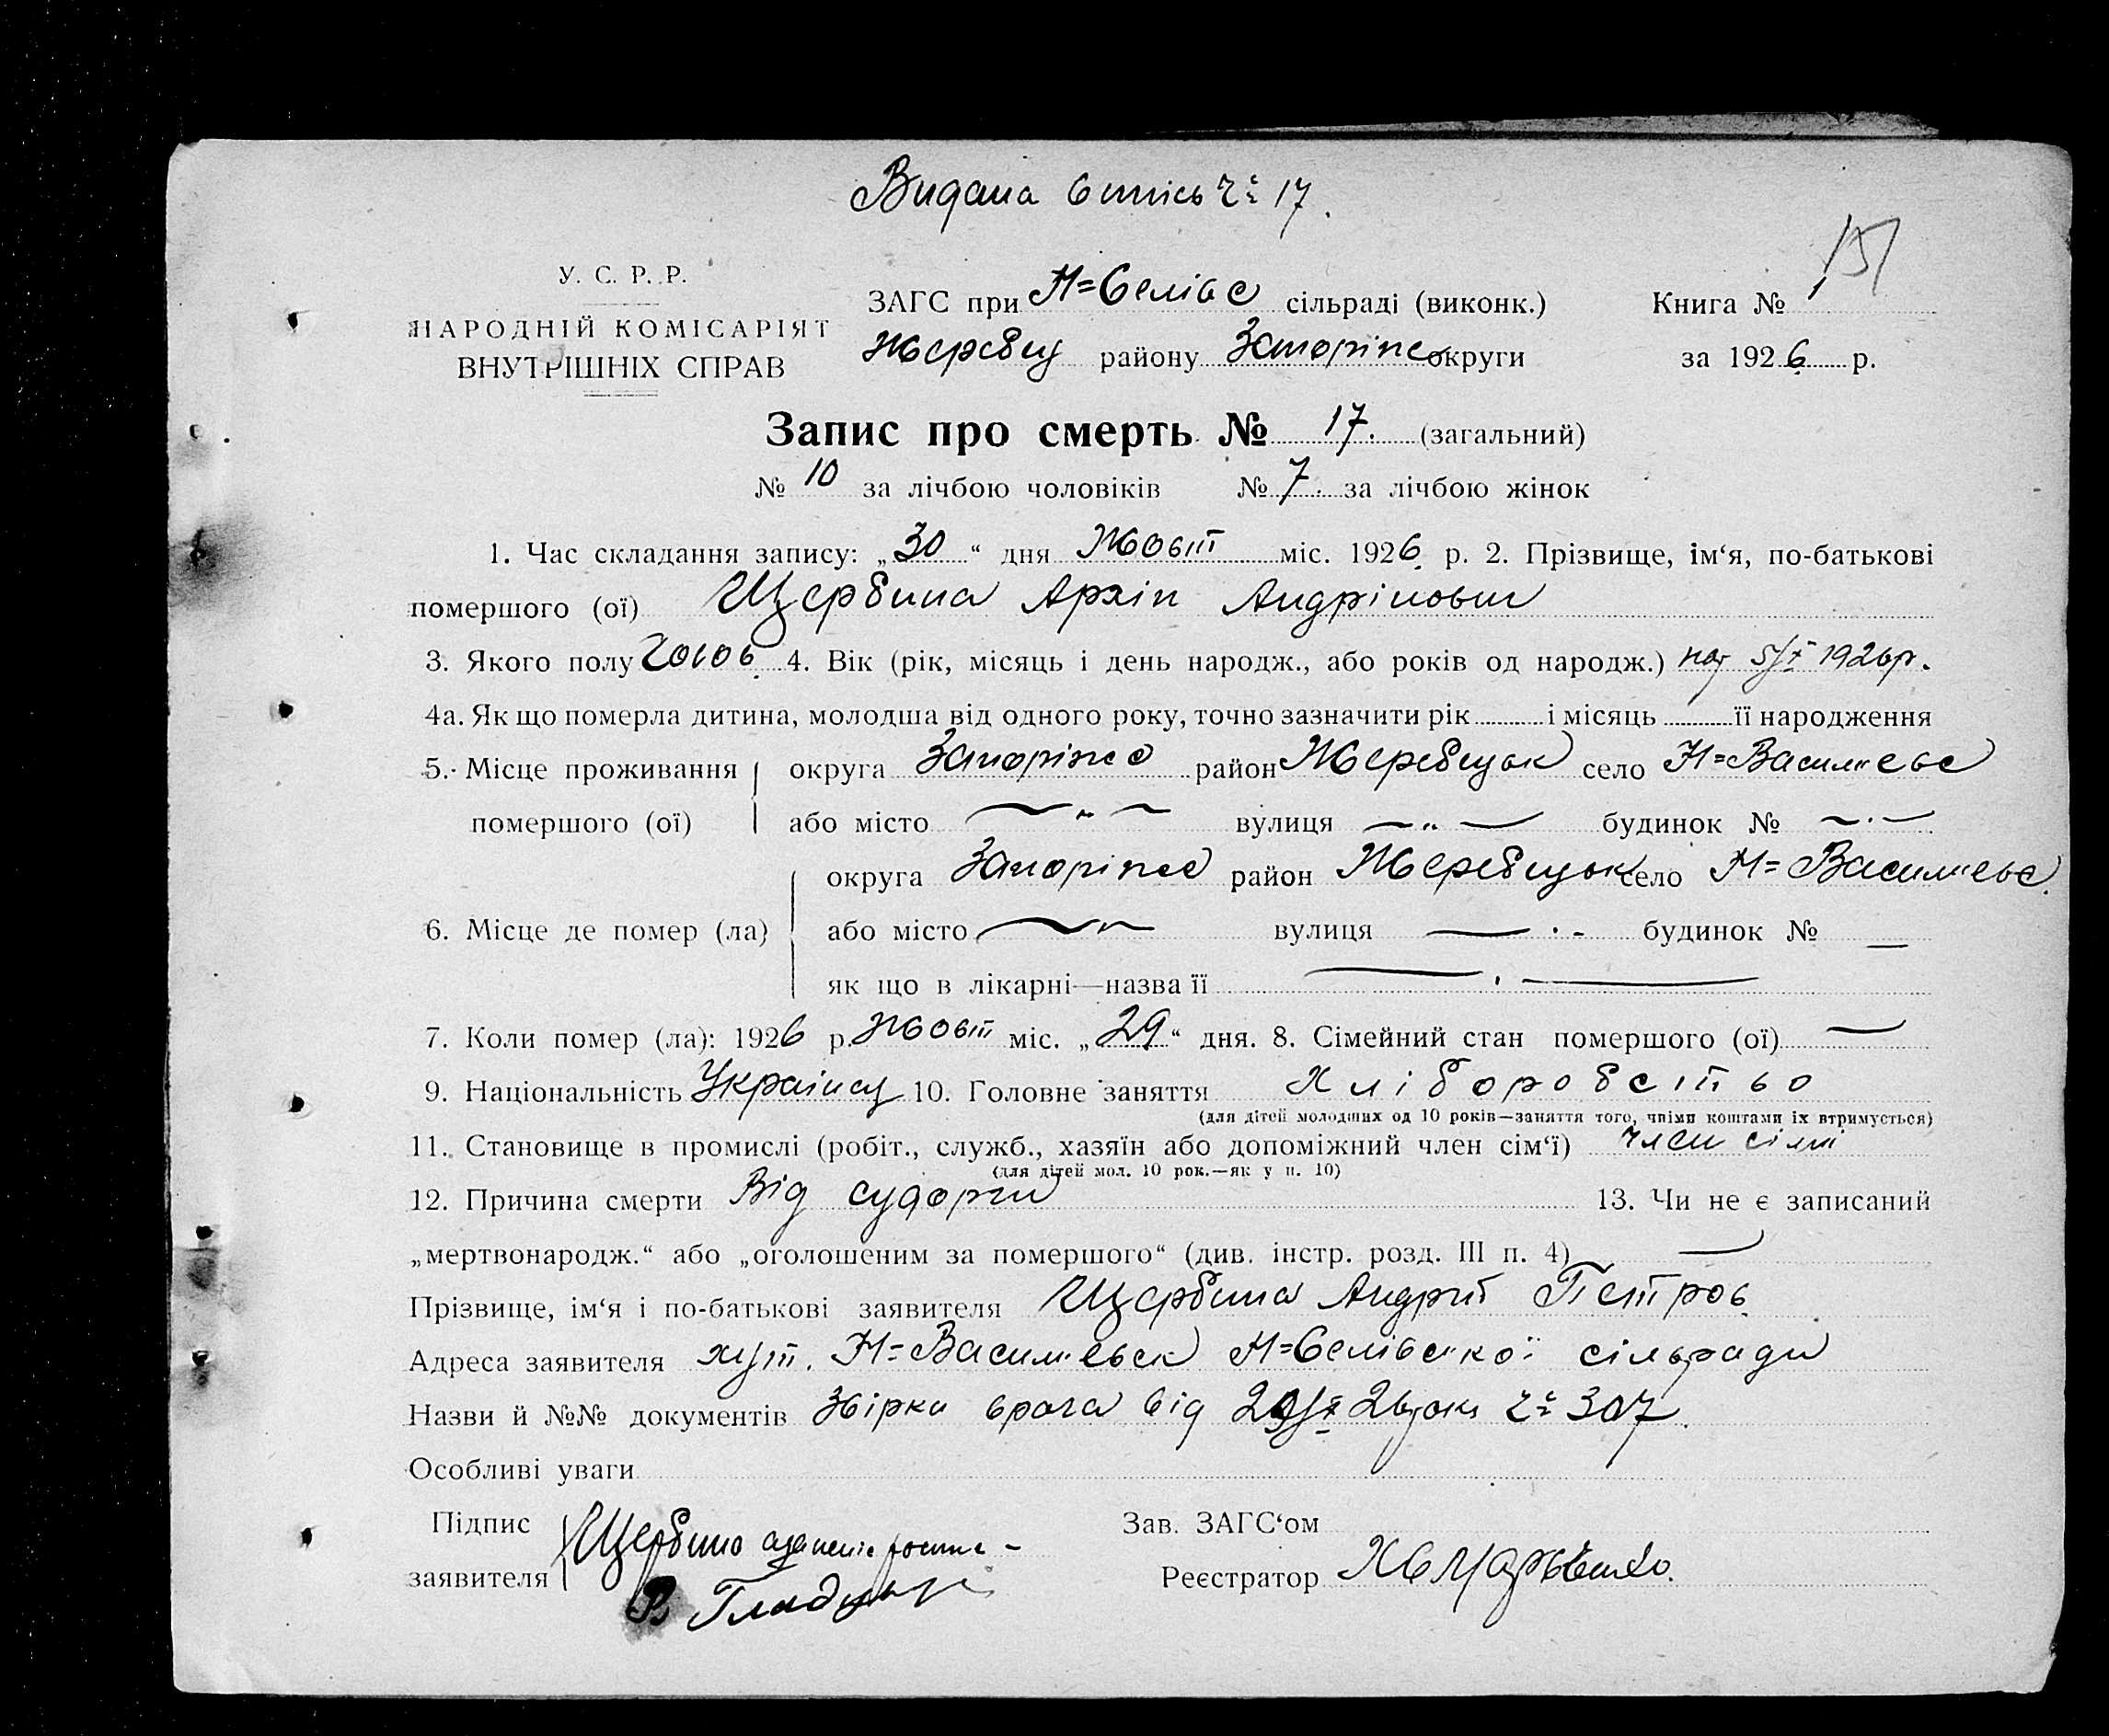 Видана виписъ Ч= 17.
151
У. С. Р. Р.
НАРОДНІЙ КОМІСАРІЯТ
ВНУТРІШНІХ СПРАВ
ЗАГС при Н=Селівс сільраді (виконк.)
Книга № 1
Жеребец району Запоріже округи
за 1926 р.
Запис про смерть № 17. (загальний)
№ 10 за лічбою чоловіків № 7. за лічбою жінок
1. Час складання запису: „30“ дня Жовт міс. 1926 р. 2. Прізвище, ім‘я, по-батькові
помершого (ої) Щербина Архіп Андріпович
3. Якого полу Чолов. 4. Вік (рік, місяць і день народж., або років од народж.) нар 5/X 1926р.
4а. Як що померла дитина, молодша від одного року, точно зазначити рік і місяць її народження
5. Місце проживання округа Запоріже район Жеребецьк село Н=Васильевс
помершого (ої) або місто —„— вулиця —„— будинок № —·—
округа Запоріже район Жеребецьк село Н=Васильевс.
6. Місце де помер (ла) або місто —„— вулиця —·- будинок № —
як що в лікарні—назва її — · —
7. Коли помер (ла): 1926 р. Жовт міс. „29“ дня. 8. Сімейний стан помершого (ої) —
9. Національність Україне 10. Головне заняття Хліборобство
(для дітей молодших од 10 років—заняття того, чиїми коштами їх втримується)
11. Становище в промислі (робіт., служб., хазяїн або допоміжний член сім‘ї) член сімї
(для дітей мол. 10 рок.—як у п. 10)
12. Причина смерти Від судорги 13. Чи не є записаний
„мертвонародж.“ або „оголошеним за помершого“ (див. інстр. розд. III п. 4) —
Прізвище, ім‘я і по-батькові заявителя Щербина Андрій Петров.
Адреса заявителя хут. Н=Васильевск Н=Селівської сільради
Назви й №№ документів Звірка врача від 29/X 26року Ч= 307.
Особливі уваги
Підпис Щербина
заявителя
Зав. ЗАГС‘ом
Реєстратор